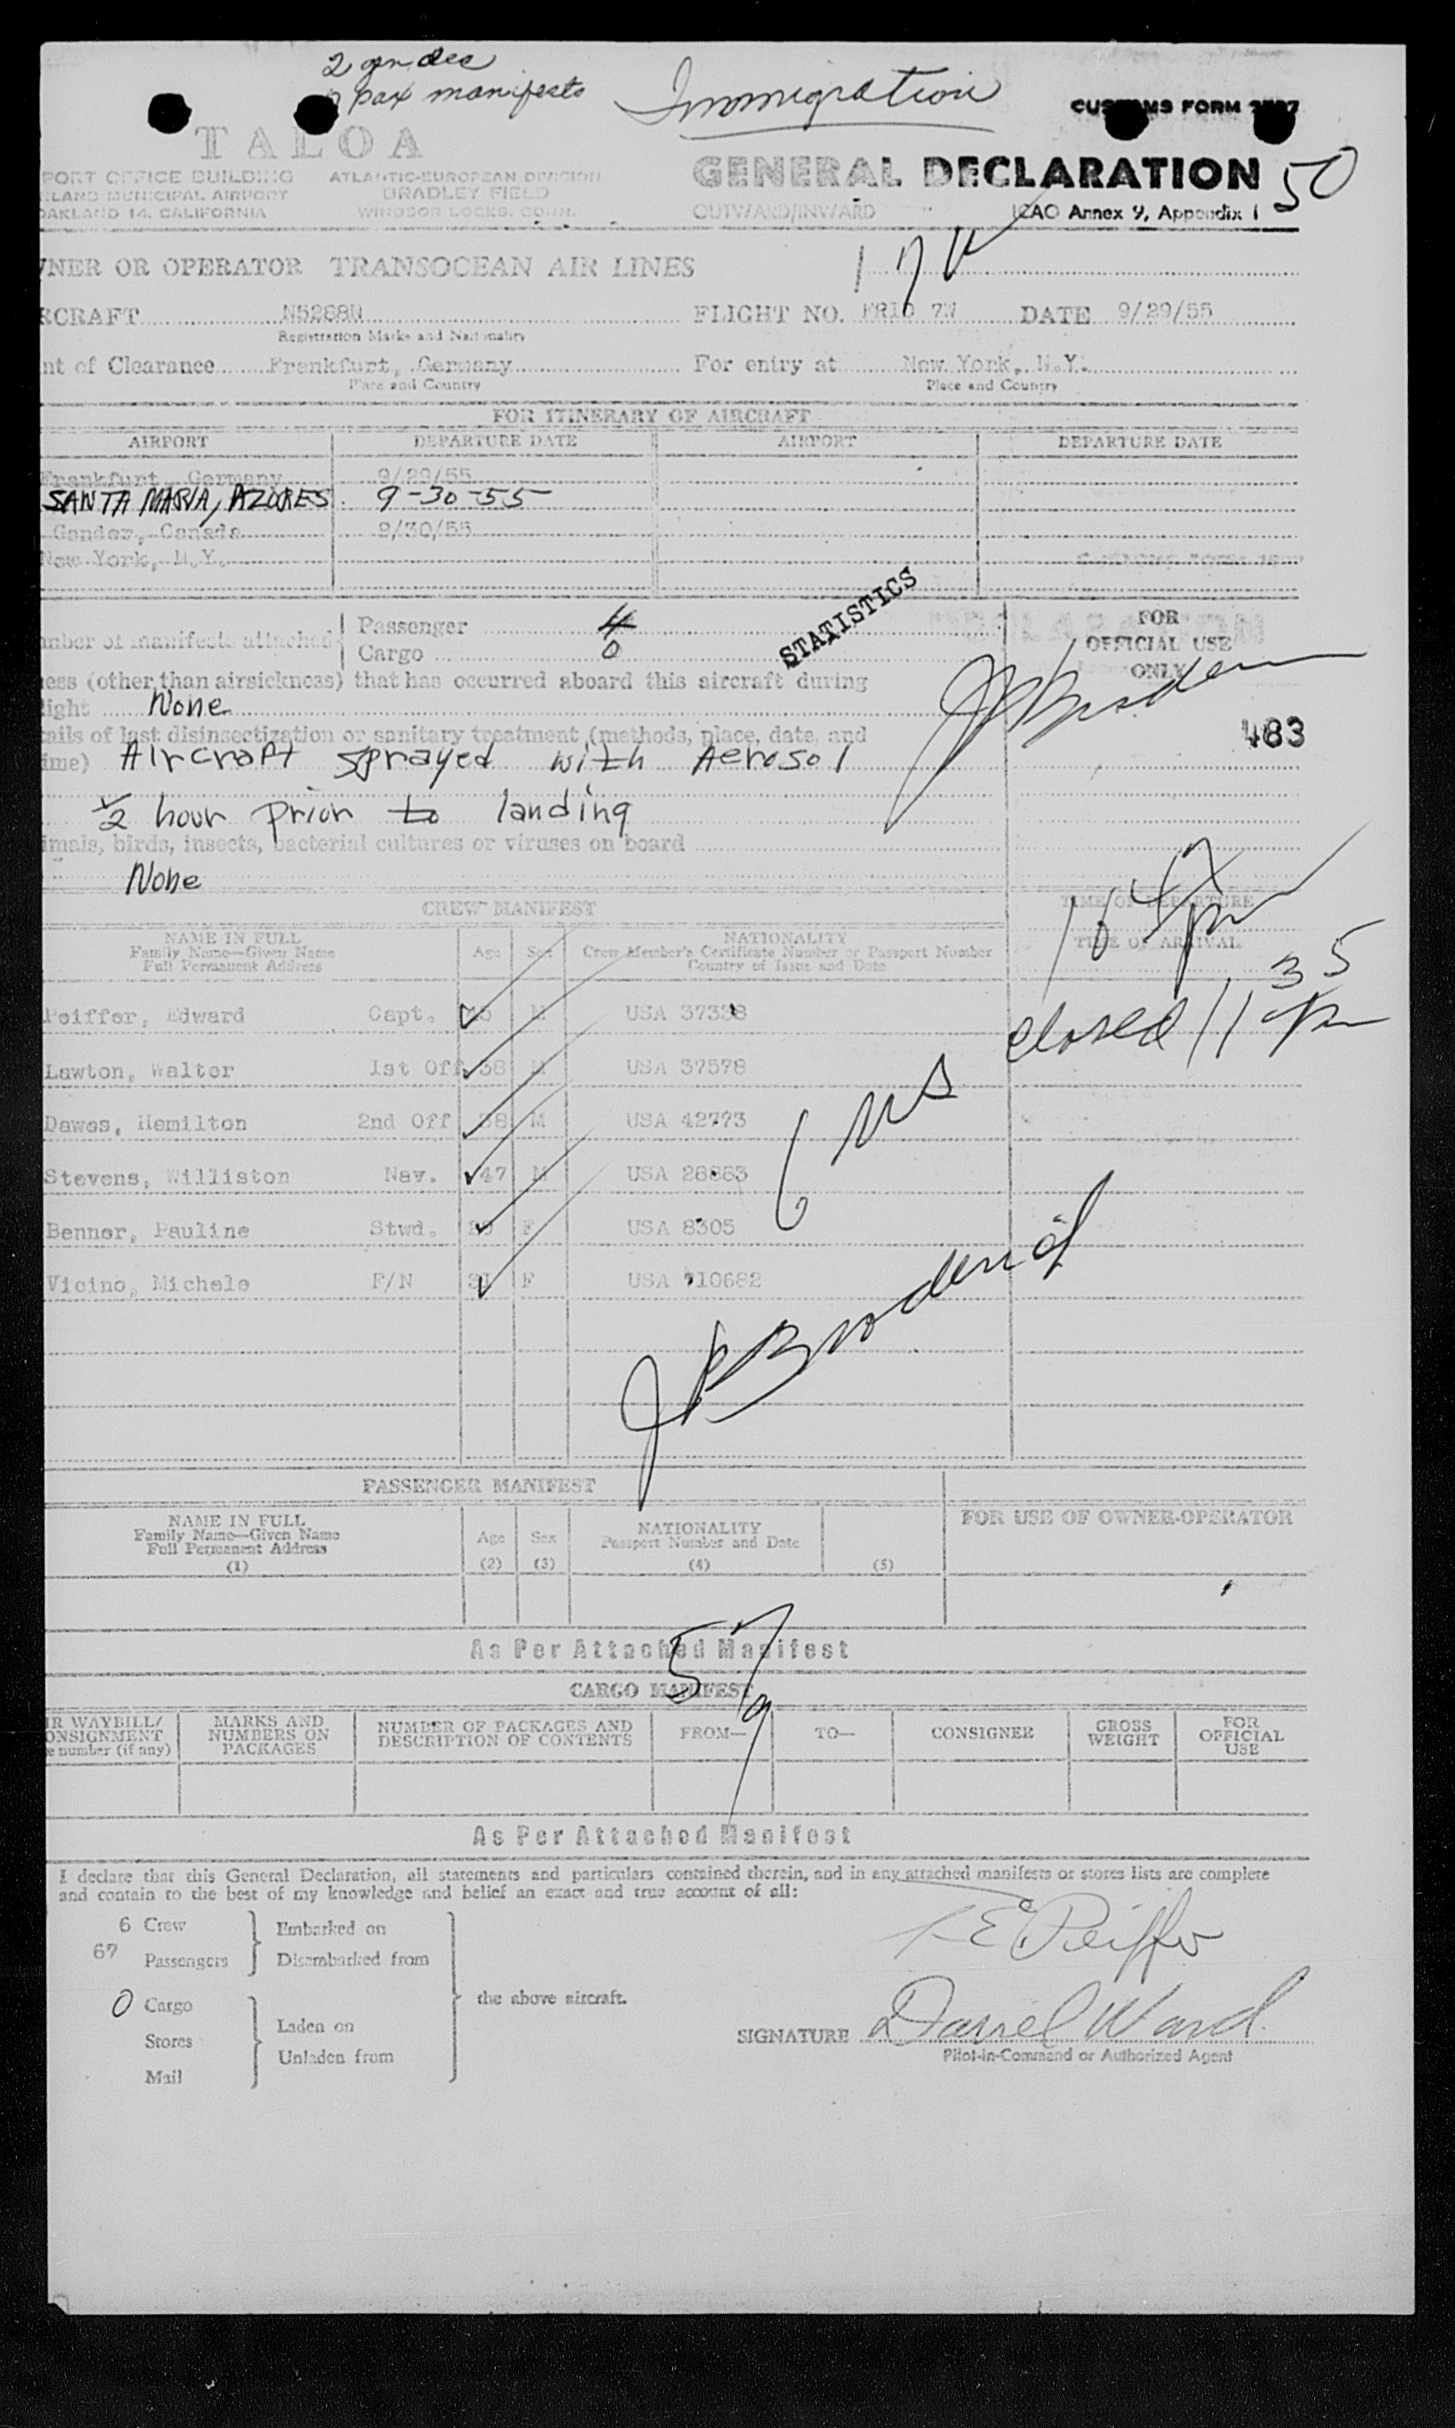 pax manifests
Immigration
CUSTOMS FORM
TALOA
PORT OFFICE BUILDING
LAND MUNICIPAL AIRPORT
OAKLAND 14, CALIFORNIA
ATLANTIC-EUROPEAN DIVISION
BRADLEY FIELD
WINDSOR LOCKS, CONN.
GENERAL DECLARATION
50
OUTWARD/INWARD
ICAO Annex 9, Appendix 1
NER OR OPERATOR TRANSOCEAN AIR LINES
RCRAFT N5288N FLIGHT NO. 7W DATE 9/29/55
Registration Marks and Nationality
nt of Clearance Frankfurt, Germany For entry at New York, N.Y.
Place and Country Place and Country
FOR ITINERARY OF AIRCRAFT
AIRPORT DEPARTURE DATE AIRPORT DEPARTURE DATE
Frankfurt, Germany 9/29/55
SANTA MARIA, AZORES 9-30-55
Gander, Canada 9/30/55
New York, N.Y.
STATISTICS
mber of manifests attached
Passenger 4
Cargo 0
FOR
OFFICIAL USE
ONLY
ness (other than airsickness) that has occurred aboard this aircraft during
light None
483
ails of last disinsectization or sanitary treatment (methods, place, date, and
ime) Aircraft sprayed with Aerosol
1/2 hour prior to landing
imals, birds, insects, bacterial cultures or viruses on board
None
CREW MANIFEST
TIME OF DEPARTURE
TIME OF ARRIVAL
closed 11 35 pm
NAME IN FULL
Family Name—Given Name
Full Permanent Address
Age Sex
NATIONALITY
Crew Member's Certificate Number or Passport Number
Country of Issue and Date
Peiffer, Edward Capt. M USA 37338
Lawton, Walter 1st Off 38 M USA 37578
Dawes, Hamilton 2nd Off 38 M USA 42773
Stevens, Williston Nav. 47 M USA 28883
Benner, Pauline Stwd. F USA 8305
Vicino, Michele F/N F USA 710682
6 us
PASSENGER MANIFEST
NAME IN FULL
Family Name—Given Name
Full Permanent Address
(1)
Age
(2)
Sex
(3)
NATIONALITY
Passport Number and Date
(4)
(5)
FOR USE OF OWNER-OPERATOR
As Per Attached Manifest
CARGO MANIFEST
IR WAYBILL/
ONSIGNMENT
e number (if any)
MARKS AND
NUMBERS ON
PACKAGES
NUMBER OF PACKAGES AND
DESCRIPTION OF CONTENTS
FROM—
TO—
CONSIGNEE
GROSS
WEIGHT
FOR
OFFICIAL
USE
As Per Attached Manifest
I declare that this General Declaration, all statements and particulars contained therein, and in any attached manifests or stores lists are complete
and contain to the best of my knowledge and belief an exact and true account of all:
6 Crew
67 Passengers
Embarked on
Disembarked from
0 Cargo
Stores
Mail
Laden on
Unladen from
the above aircraft.
E Peiffer
SIGNATURE Daniel Ward
Pilot-in-Command or Authorized Agent